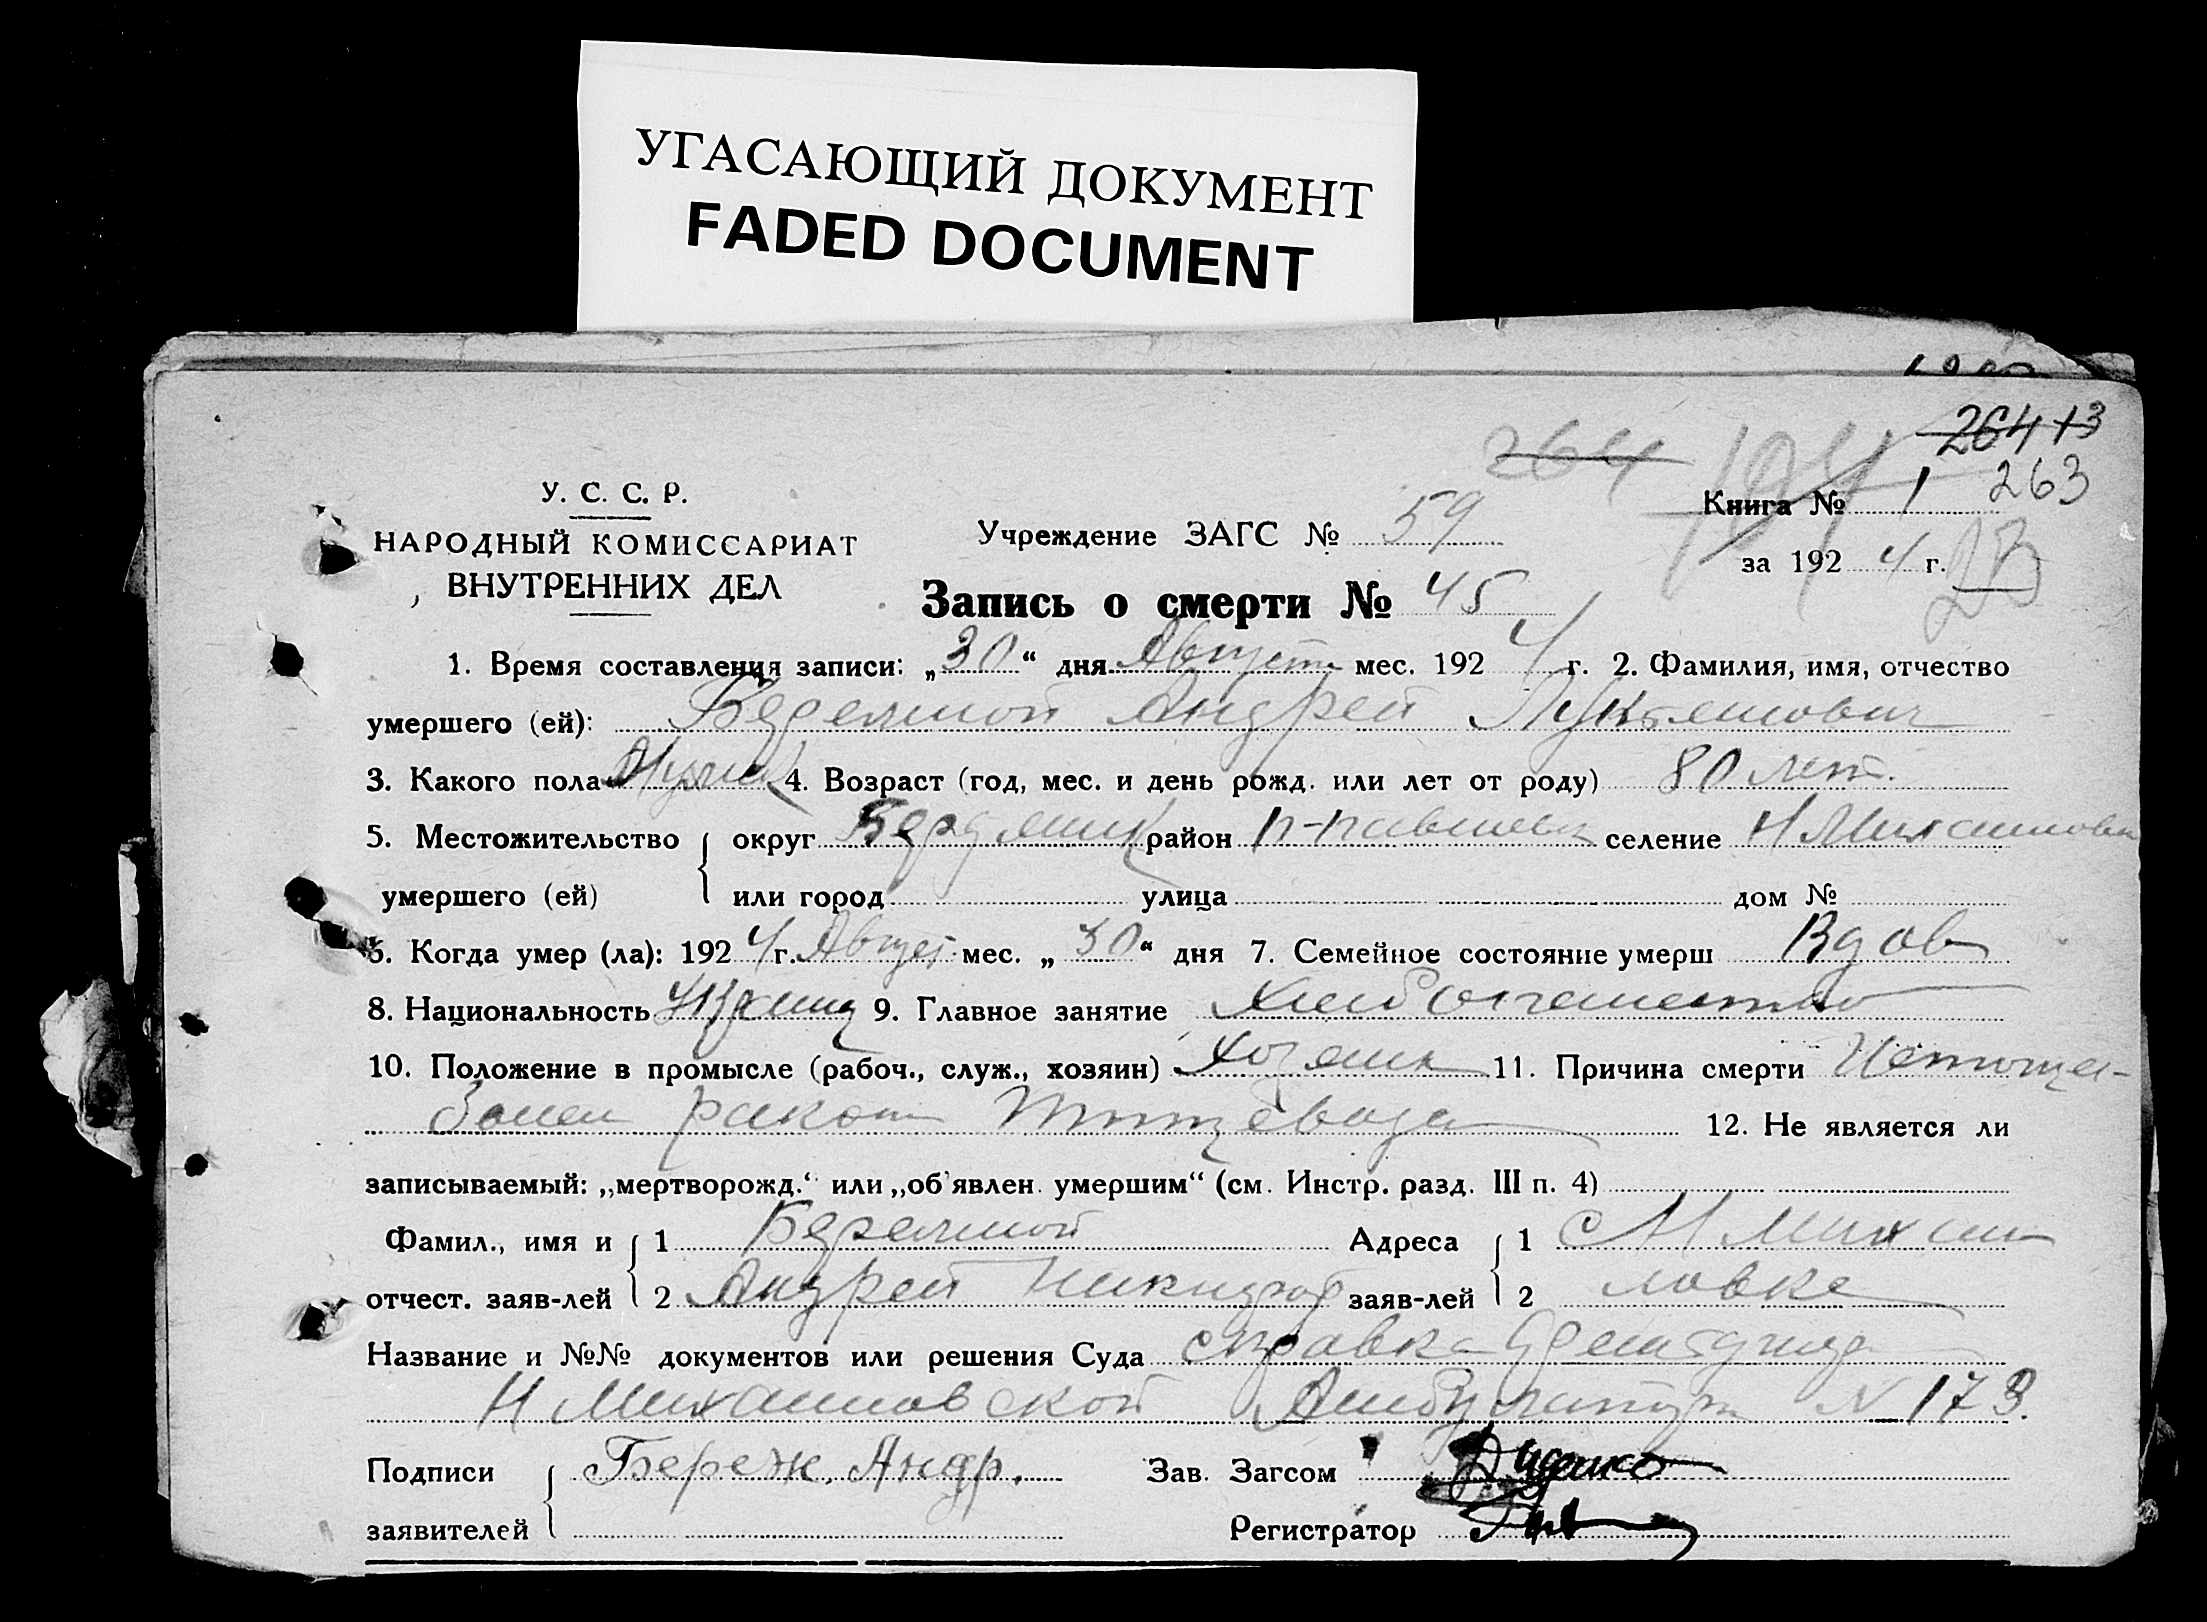 УГАСАЮЩИЙ ДОКУМЕНТ
FADED DOCUMENT
264+3
264
263
У. С. С. Р.
НАРОДНЫЙ КОМИССАРИАТ
ВНУТРЕННИХ ДЕЛ
Учреждение ЗАГС № 59
Книга № 1
за 1924 г.
Запись о смерти № 45
1. Время составления записи: „30“ дня Августа мес. 1924 г. 2. Фамилия, имя, отчество
умершего (ей): Андрей Лукьянович
3. Какого пола Мужск 4. Возраст (год, мес. и день рожд. или лет от роду) 80 лет.
5. Местожительство округ Бердянск район селение Н Михайловка
умершего (ей) или город улица дом №
6. Когда умер (ла): 1924 г. Август мес. „30“ дня 7. Семейное состояние умерш Вдов
8. Национальность Украинц 9. Главное занятие Хлебопашество
10. Положение в промысле (рабоч., служ., хозяин) Хозяин 11. Причина смерти
раком пищевода 12. Не является ли
записываемый: „мертворожд.“ или „об'явлен. умершим“ (см. Инстр. разд. III п. 4)
Фамил., имя и 1 Адреса 1 с Н Михай
отчест. заяв-лей 2 Андрей Никифор заяв-лей 2 ловка
Название и №№ документов или решения Суда справка
Н Михайловской Амбулатори N 173.
Подписи Береж. Андр. Зав. Загсом
заявителей Регистратор